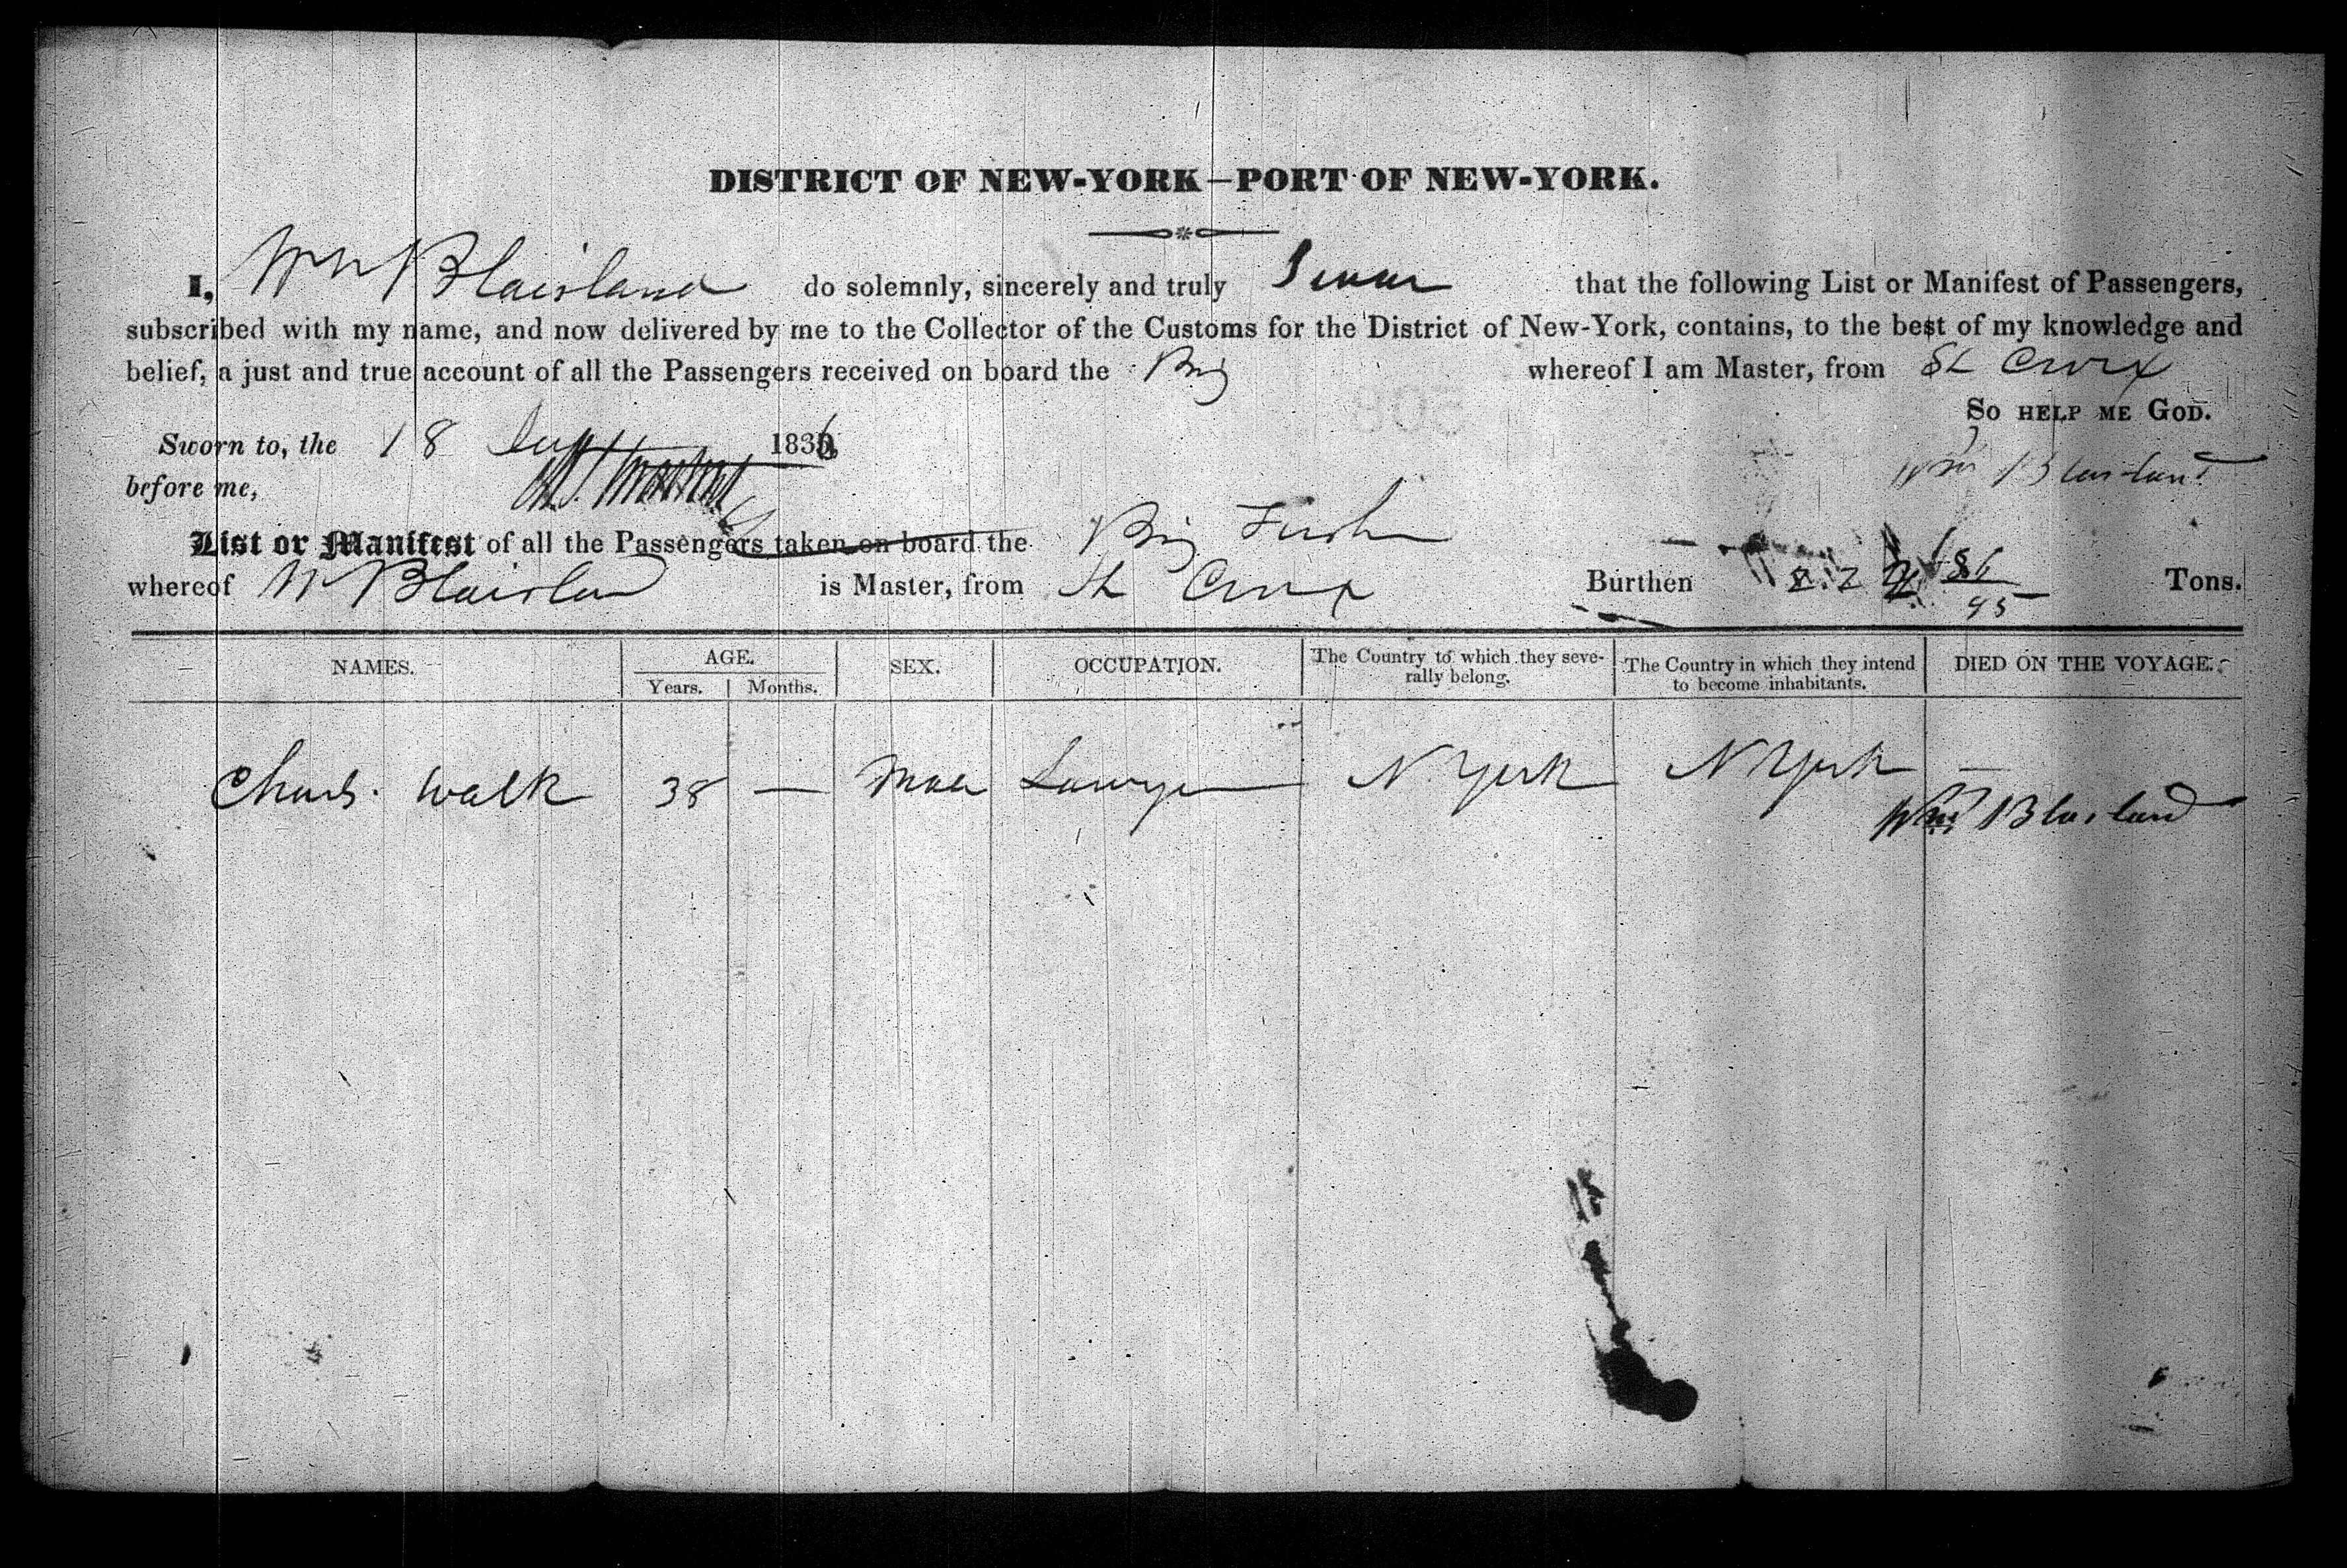 DISTRICT OF NEW-YORK—PORT OF NEW-YORK.
I, Wm Blaisland do solemnly, sincerely and truly Swear that the following List or Manifest of Passengers,
subscribed with my name, and now delivered by me to the Collector of the Customs for the District of New-York, contains, to the best of my knowledge and
belief, a just and true account of all the Passengers received on board the Brig whereof I am Master, from St Croix
SO HELP ME GOD.
Sworn to, the 18 1836
Wm Blaisland
before me,
List or Manifest of all the Passengers taken on board the Brig
whereof W Blaislan is Master, from St Croix Burthen Tons.
NAMES. AGE. SEX. OCCUPATION. The Country to which they seve-rally belong. The Country in which they intend to become inhabitants. DIED ON THE VOYAGE.
Years. Months.
Charls. Walk 38 — Male Lawyer N York N York —
Wm Blaisland